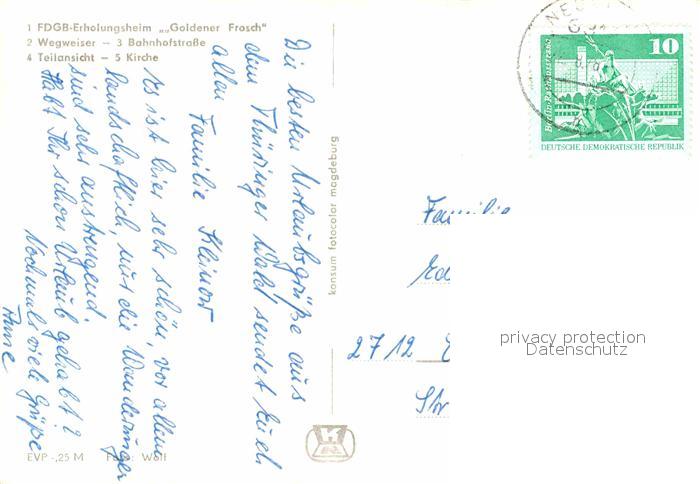 1 FDGB-Erholungsheim „„Goldener Frosch"
2 Wegweiser — 3 Bahnhofstraße
4 Teilansicht — 5 Kirche
Die besten Urlaubsgrüße aus
dem Thüringer Wald sendet Euch
allen Familie Kleinow
Es ist hier sehr schön, vor allem
landschaftlich, nur die Wanderungen
sind sehr anstrengend.
Habt Ihr schon Urlaub gehabt?
Nochmals viele Grüße
EVP -,25 M Foto: Wolf
konsum fotocolor magdeburg
10
DEUTSCHE DEMOKRATISCHE REPUBLIK
Familie
2712
Str
privacy protection
Datenschutz